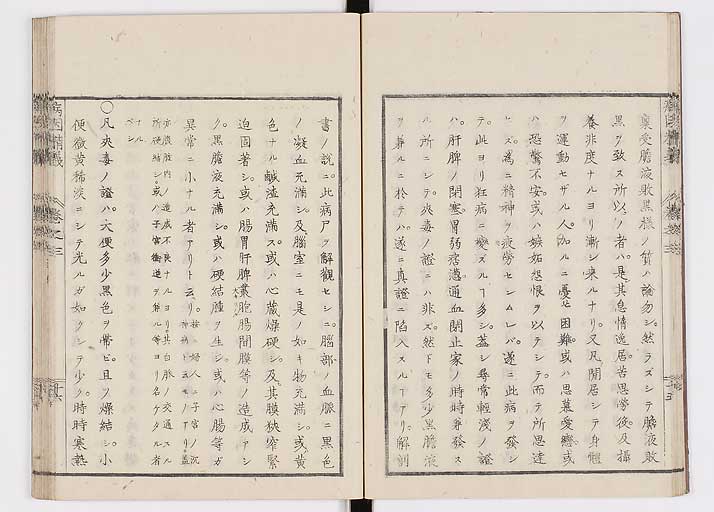 稟受膽液敗黒様ノ質ハ論勿シ。然ラズシテ膽液敗
黒ヲ致ス所以ノ者ハ。是其怠惰逸居。苦思勞役。及攝
養非度ナルヨリ漸ン来ルナリ。又凡閒居シテ身體
ヲ運動セザル人。加ルニ憂悲困難。或ハ思慕愛戀。或
ハ恐驚不安。或ハ嫉妬怨恨ヲ以テシテ。而テ所思達
セズ。為ニ精神ヲ疲勞センムレバ。遂ニ此病ヲ發シ
テ。此ヨリ狂病ニ變スルヿ多シ。蓋シ尋常輕淺ノ證
ハ。肝脾ノ閉塞。胃弱痞滿。通血閉止家ノ時時兼發ス
ル所ニシテ。夾毒ノ證ニハ非ズ。然ドモ多少黒膽液
ヲ兼ルニ於テハ。遂ニ真證ニ陷入スルヿアリ。解剖
書ノ説ニ。此病尸ヲ解觀セシニ。腦部ノ血脈ニ黒色
ノ凝血充滿シ。及腦室ニモ是ノ如キ物充滿シ。或ハ黄
色ナル鹹渣充滿ス。或ハ心藏燥硬シ。及其膜狹窄緊
迫固著シ。或ハ腸胃肝脾囊胞腸間膜等ノ造成アン
ク。黒膽液充滿シ。或ハ硬結腫ヲ生シ。或ハ心腸等ガ
異常ニ小ナル者アリト云リ。按ニ婦人ニ子宮ノ沉
亦微腹内ノ造成不良ナルヨリ其白脈ノ交通スル
所硬結シ或ハ子宮衝逆ヲ解ル等ヨリ名ケタル者
ナル
○凡夾毒ノ證ハ。大便多少黒色ヲ帶ビ。且ツ燥結シ。小
便微黄稀淡ニシテ光ルガ如クシテ少ク。時時寒熱
病因精義
巻之三